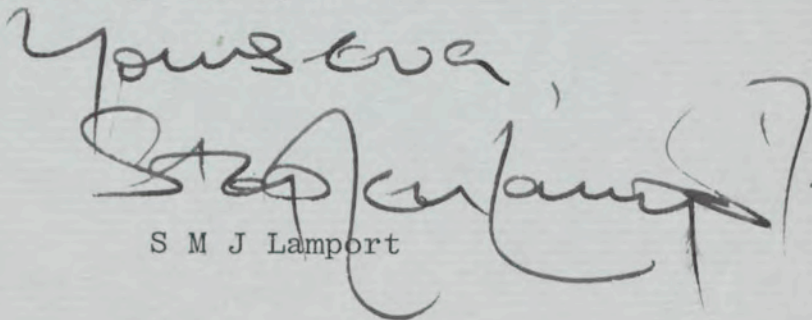 Yours ever,
Stephen Lamport.
S M J Lamport